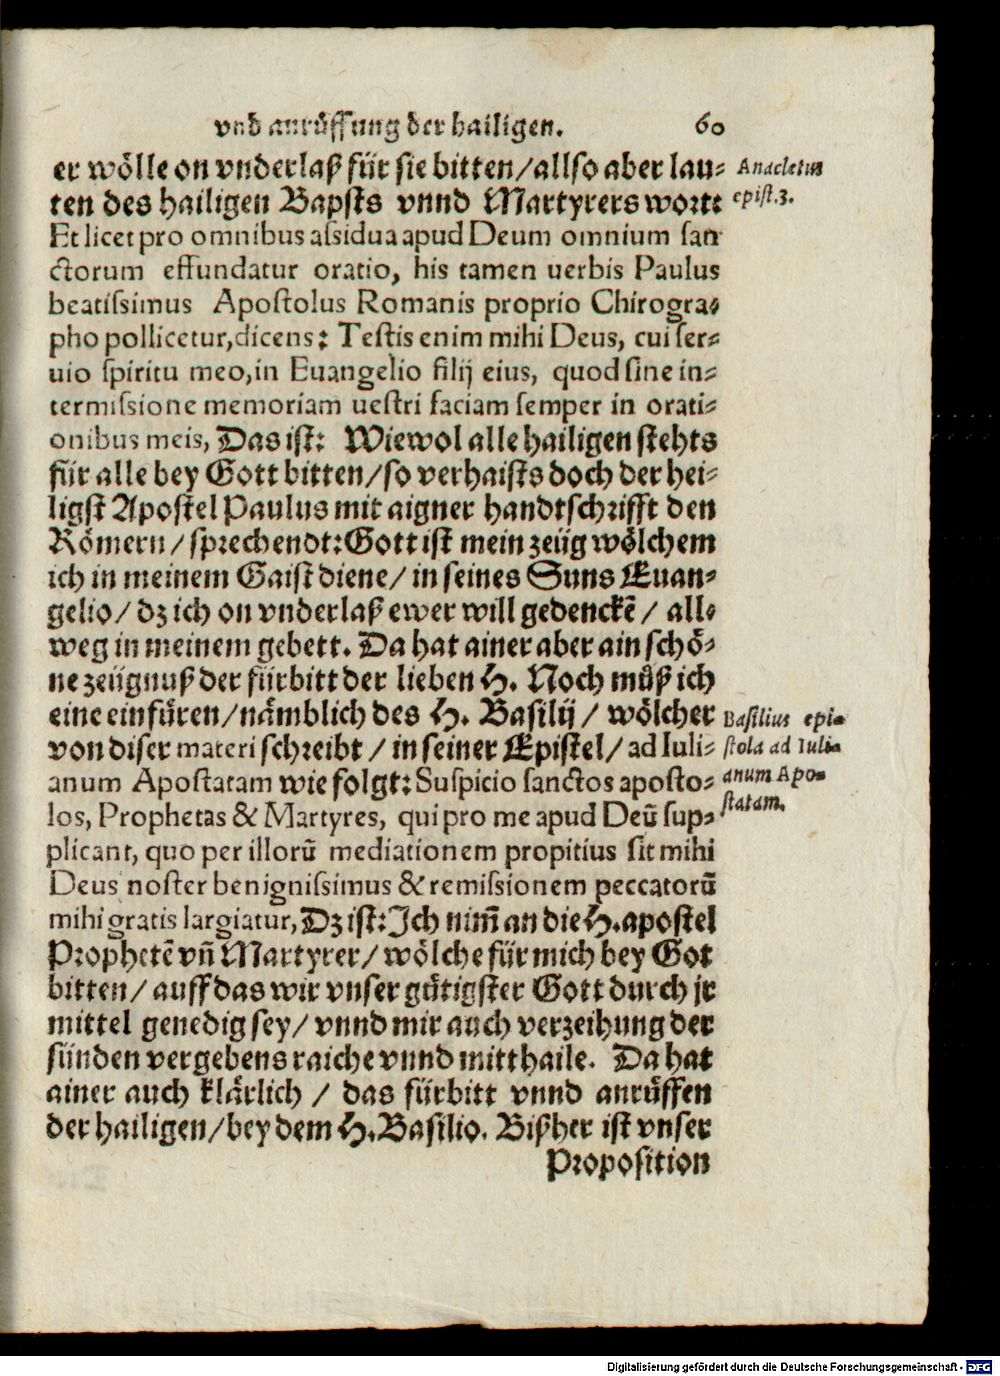 vnd anrůffung der hailigen. 60
er wölle on vnderlaß für sie bitten/allso aber lau⸗
ten des hailigen Bapsts vnnd Martyrers wort:
Anacletus
epist.3.
Et licet pro omnibus assidua apud Deum omnium san
ctorum effundatur oratio, his tamen uerbis Paulus
beatissimus Apostolus Romanis proprio Chirogra⸗
pho pollicetur, dicens: Testis enim mihi Deus, cui ser⸗
uio spiritu meo, in Euangelio filij eius, quod sine in⸗
termissione memoriam uestri faciam semper in orati⸗
onibus meis, Das ist: Wiewol alle hailigen stehts
für alle bey Gott bitten/so verhaists doch der hei⸗
ligst Apostel Paulus mit aigner handtschrifft den
Römern/sprechendt: Gott ist mein zeüg wölchem
ich in meinem Gaist diene/in seines Suns Euan⸗
gelio/dz ich on vnderlaß ewer will gedenckē/all⸗
weg in meinem gebett. Da hat ainer aber ain schö⸗
ne zeügnuß der fürbitt der lieben H. Noch můß ich
eine einfüren/nämblich des H. Basilij/wölcher
von diser materi schreibt/in seiner Epistel/ad Iuli⸗
anum Apostatam wie folgt: Suspicio sanctos aposto⸗
Basilius epi⸗
stola ad Iuli⸗
anum Apo⸗
statam.
los, Prophetas & Martyres, qui pro me apud Deū sup⸗
plicant, quo per illorū mediationem propitius sit mihi
Deus noster benignissimus & remissionem peccatorū
mihi gratis largiatur, Dz ist: Ich nim̄ an die H. apostel
Prophetē vn̄ Martyrer/wölche für mich bey Got
bitten/auff das wir vnser gůtigster Gott durch jr
mittel genedig sey/vnnd mir auch verzeihung der
sünden vergebens raiche vnnd mitthaile. Da hat
ainer auch klärlich/das fürbitt vnnd anrůffen
der hailigen/bey dem H. Basilio. Bißher ist vnser
Proposition
Digitalisierung gefördert durch die Deutsche Forschungsgemeinschaft - DFG